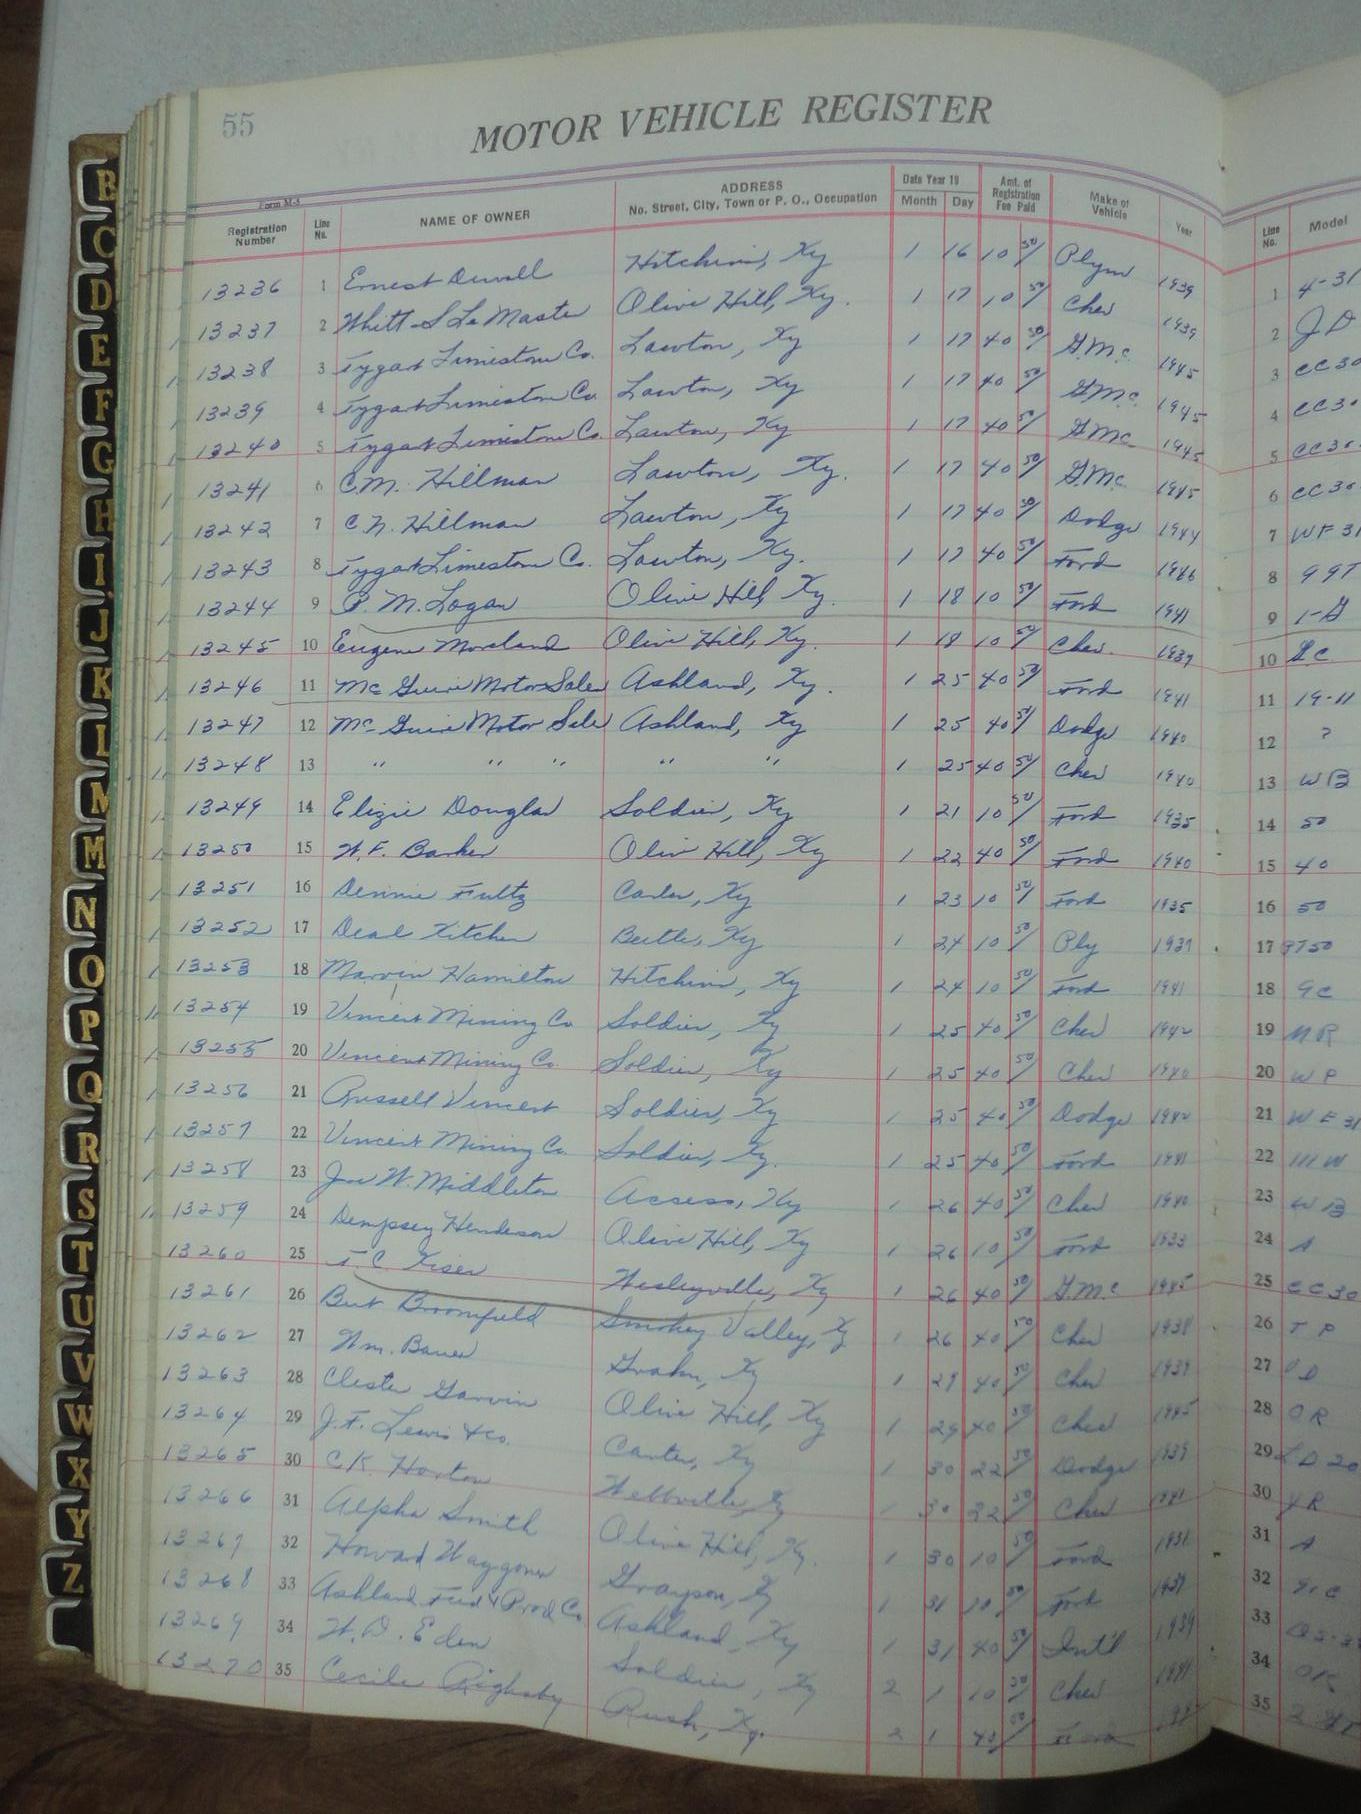 55
MOTOR VEHICLE REGISTER
Form M-5
Registration Number Line No. NAME OF OWNER ADDRESS No. Street, City, Town or P. O., Occupation Date Year 19 Month Day Amt. of Registration Fee Paid Make of Vehicle Year Line No. Model
13236 1 Ernest Duvall Hitchins, Ky 1 16 10 50/ Plym 1939 1 4-31
13237 2 Whitt S Le Master Olive Hill, Ky. 1 17 10 50/ Chev 1939 2 JD
13238 3 Tygart Limestone Co. Lawton, Ky 1 17 40 50/ G.M.C. 1945 3 CC30
13239 4 Tygart Limestone Co. Lawton, Ky 1 17 40 50/ G.M.C. 1945 4 CC30
13240 5 Tygart Limestone Co. Lawton, Ky 1 17 40 50/ G.M.C. 1945 5 CC30
13241 6 C.M. Hillman Lawton, Ky. 1 17 40 50/ G.M.C. 1945 6 CC30
13242 7 C.N. Hillman Lawton, Ky 1 17 40 50/ Dodge 1944 7 WF31
13243 8 Tygart Limestone Co. Lawton, Ky. 1 17 40 50/ Ford 1946 8 99T
13244 9 P. M. Logan Olive Hill, Ky. 1 18 10 50/ Ford 1941 9 1-G
13245 10 Eugene Moreland Olive Hill, Ky. 1 18 10 50/ Chev. 1939 10
13246 11 Mc Guire Motor Sales Ashland, Ky. 1 25 40 50/ Ford 1941 11 19-11
13247 12 Mc Guire Motor Sale Ashland, Ky 1 25 40 50/ Dodge 1940 12 ?
13248 13 " " " " " 1 25 40 50/ Chev 1940 13 WB
13249 14 Elizie Douglas Soldier, Ky 1 21 10 50/ Ford 1935 14 50
13250 15 W.F. Barker Olive Hill, Ky 1 22 40 50/ Ford 1940 15 40
13251 16 Dennie Fultz Carter, Ky 1 23 10 50/ Ford 1935 16 50
13252 17 Deal Kitchen Beetle, Ky 1 24 10 50/ Ply 1937 17 PT50
13253 18 Marvin Hamilton Hitchins, Ky 1 24 10 50/ Ford 1941 18 GC
13254 19 Vincent Mining Co Soldier, Ky 1 25 40 50/ Chev 1942 19 MR
13255 20 Vincent Mining Co. Soldier, Ky 1 25 40 50/ Chev 1940 20 WP
13256 21 Russell Vincent Soldier, Ky 1 25 40 50/ Dodge 1942 21 WF31
13257 22 Vincent Mining Co. Soldier, Ky. 1 25 40 50/ Ford 1941 22 111W
13258 23 Joe W. Middleton Access, Ky 1 26 40 50/ Chev 1940 23 WB
13259 24 Dempsey Henderson Olive Hill, Ky 1 26 10 50/ Ford 1933 24 A
13260 25 T. C Kiser Wesleyville, Ky 1 26 40 50/ G.M.C 1945 25 CC30
13261 26 Bert Broomfield Smokey Valley, Ky 1 26 40 50/ Chev 1938 26 TP
13262 27 Wm. Bauer Grahn, Ky 1 29 40 50/ Chev 1939 27
13263 28 Chester Garvin Olive Hill, Ky 1 29 40 50/ Chev 1945 28 OR
13264 29 J.F. Lewis & Co. Carter, Ky 1 30 22 50/ Dodge 1939 29 LD20
13265 30 C K Horton Webbville, Ky 1 30 22 50/ Chev 1941 30 YR
13266 31 Alpha Smith Olive Hill, Ky. 1 30 10 50/ Ford 1931 31 A
13267 32 Howard Waggoner Grayson, Ky 1 31 10 50/ Ford 1937 32
13268 33 Ashland Feed & Prod Co. Ashland, Ky 1 31 40 50/ Int'l 1939 33
13269 34 W. D. Eden Soldier, Ky 2 1 10 50/ Chev 1941 34
13270 35 Cecile Righsby Rush, Ky. 2 1 Ford 35
B
C
D
E
F
G
H
I
J
K
L
M
M
N
O
P
Q
R
S
T
U
V
W
X
Y
Z